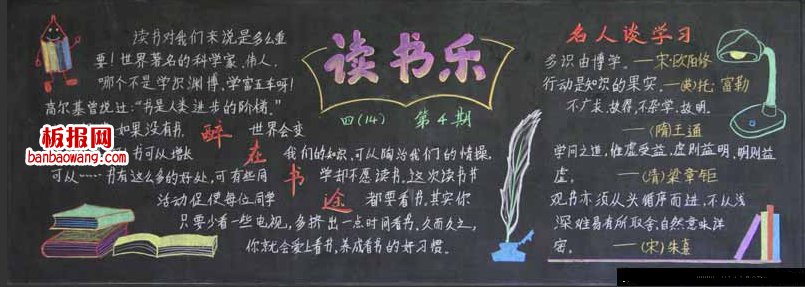 读书对我们来说是多么重
要！世界著名的科学家、伟人，
哪个不是学识渊博，学富五车呀！
高尔基曾说过：“书是人类进步的阶梯。”
如果没有书，世界会变
书可以增长我们的知识，可以陶冶我们的情操，
可以……书有这么多的好处，可有些同学却不愿读书，这次读书节
活动促使每位同学都要看书，其实你
只要少看一些电视，多挤出一点时间看书，久而久之，
你就会爱上看书，养成看书的好习惯。
醉
在
书
途
板报网
banbaowang.com
读书乐
四(14) 第4期
名人谈学习
多识由博学。——宋·欧阳修
行动是知识的果实。——(英)托·富勒
不广求，故得，不杂学，故明。
——(隋)王通
学问之道，惟虚受益，虚则益明，明则益
虚。——(清)梁章钜
观书亦须从头循序而进，不从浅
深难易有所取舍，自然意味详
密。——(宋)朱熹